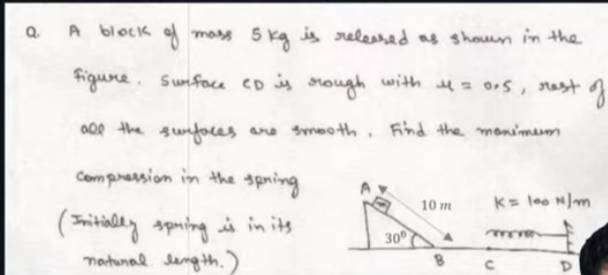 Q. A block of mass 5 kg is released as shown in the
figure. Surface CD is rough with μ = 0.5, rest of
all the surfaces are smooth. Find the maximum
compression in the spring
(Initially spring is in its
natural length.)
A
10 m
K = 100 N/m
30°
B
C
D